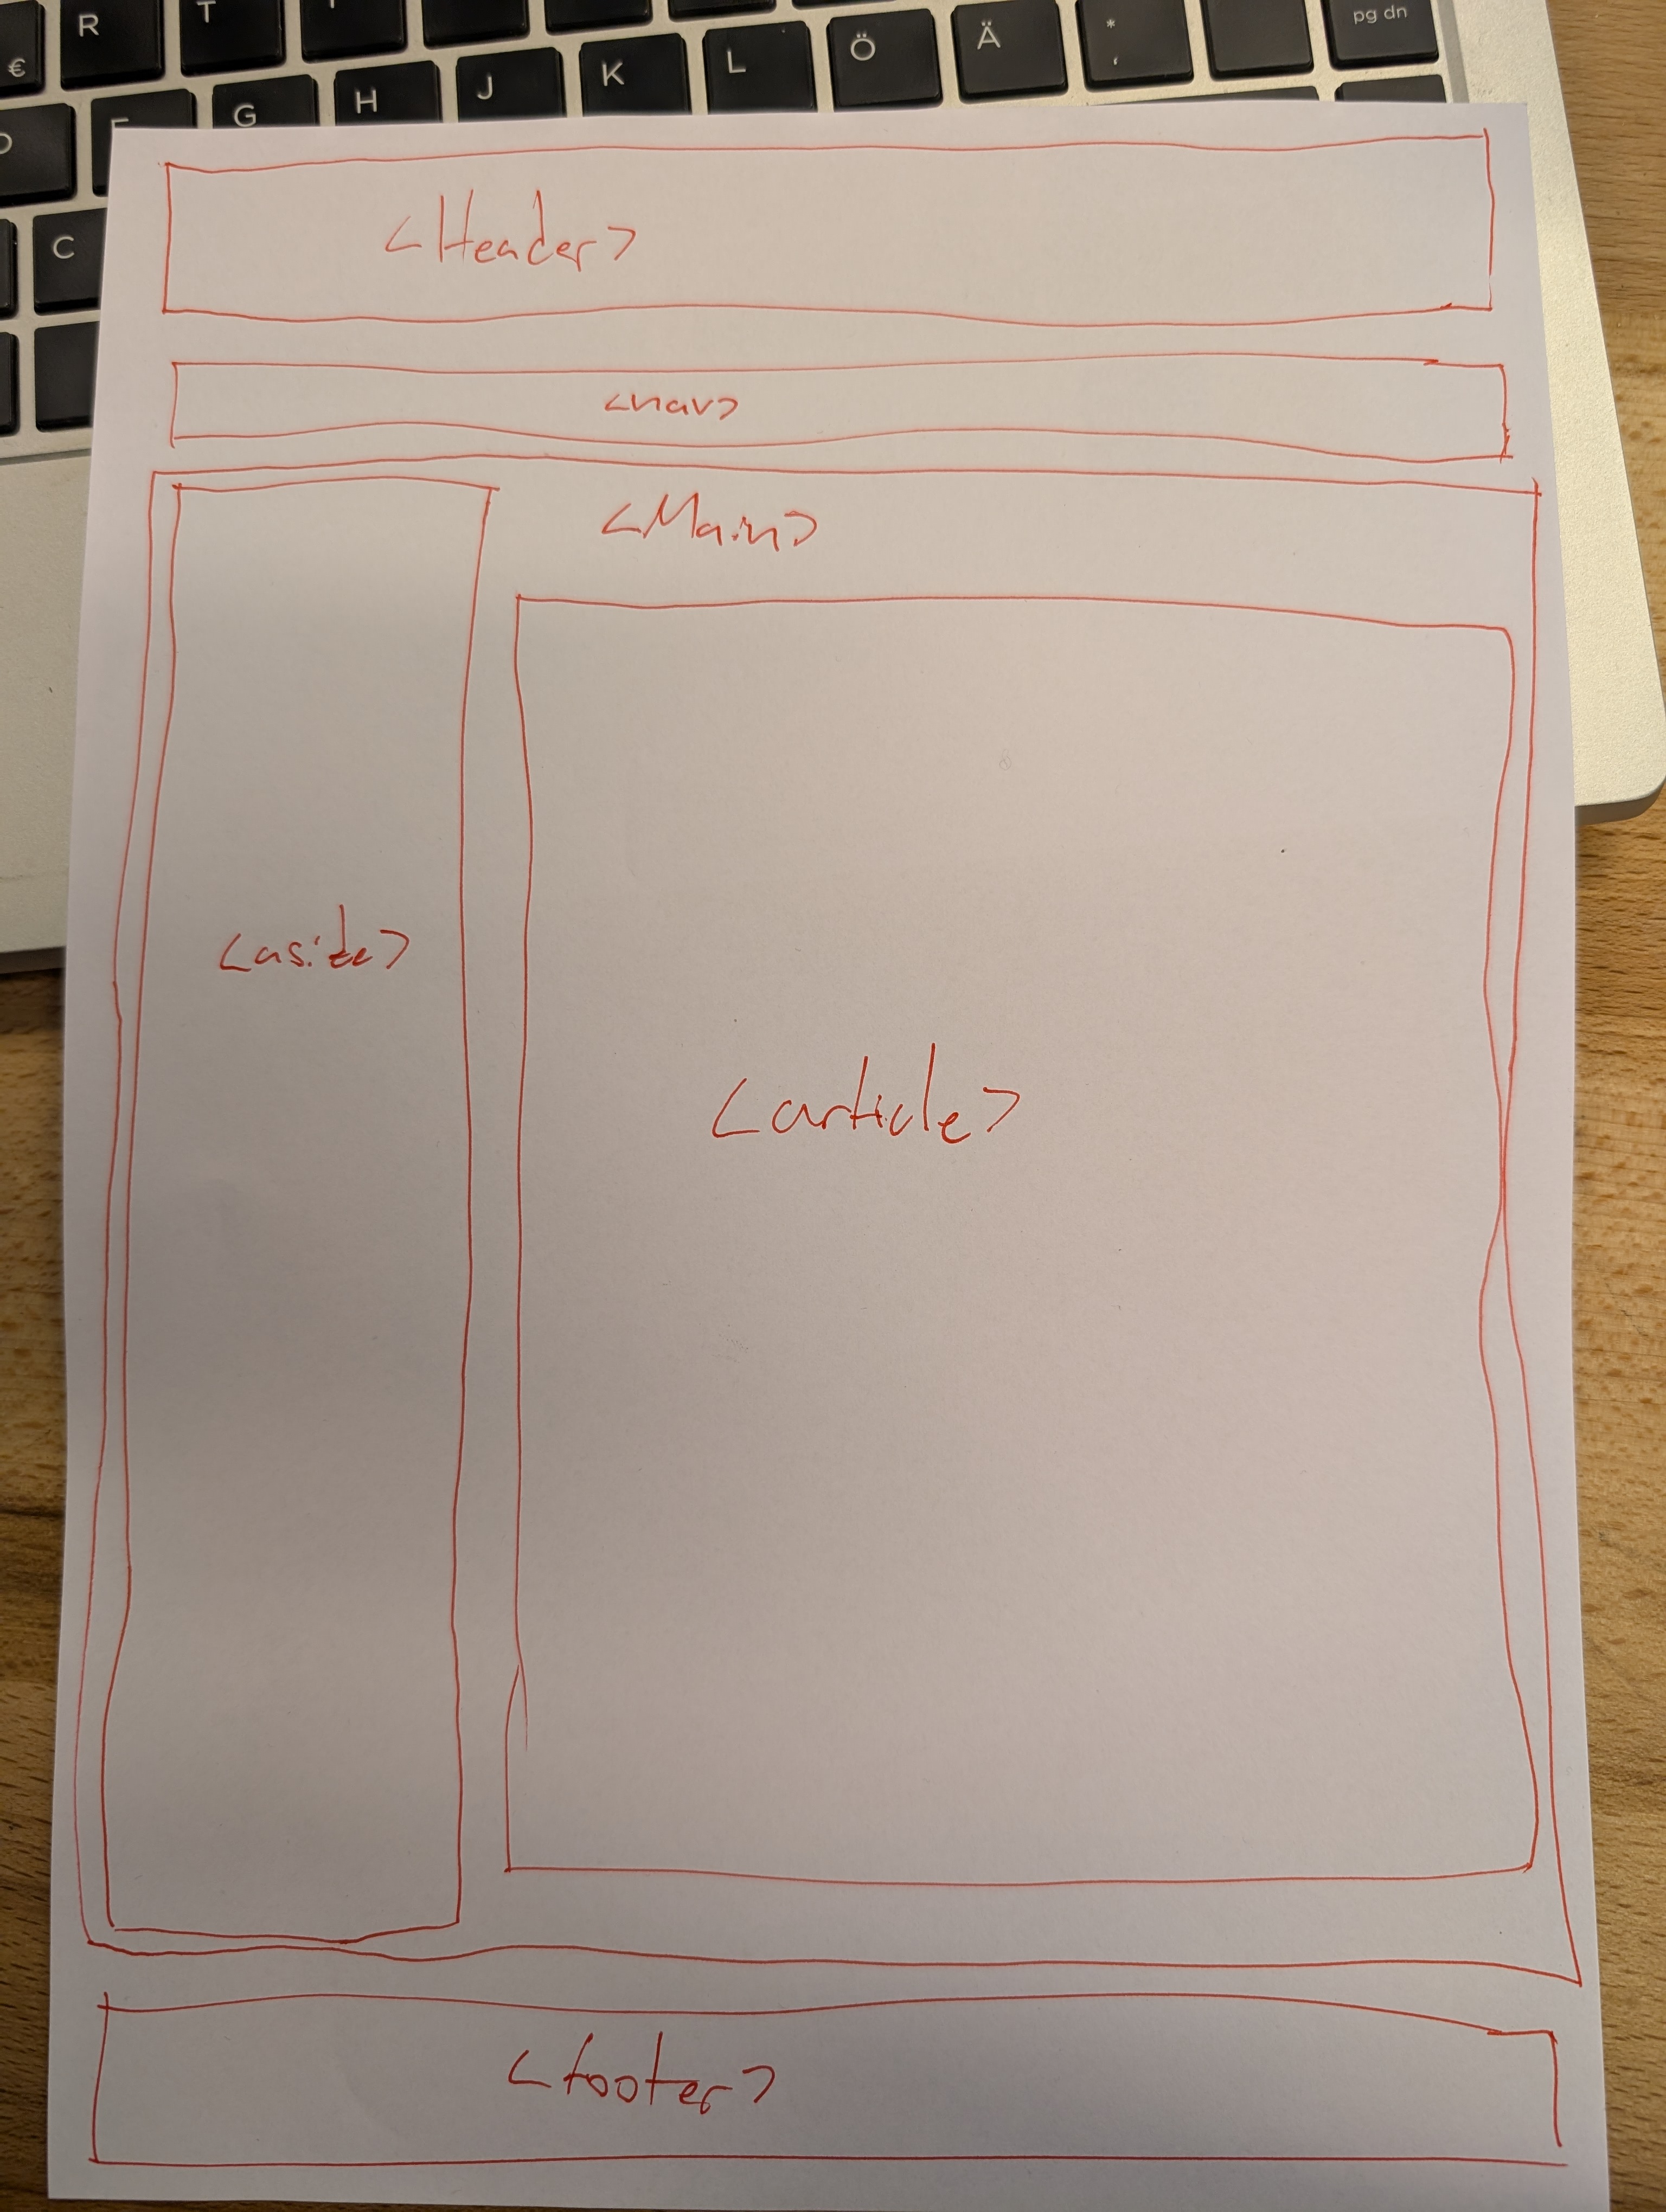 R T
pg dn
€ G H J K L Ö Ä * '
C
<Header>
<nav>
<Main>
<aside>
<article>
<footer>